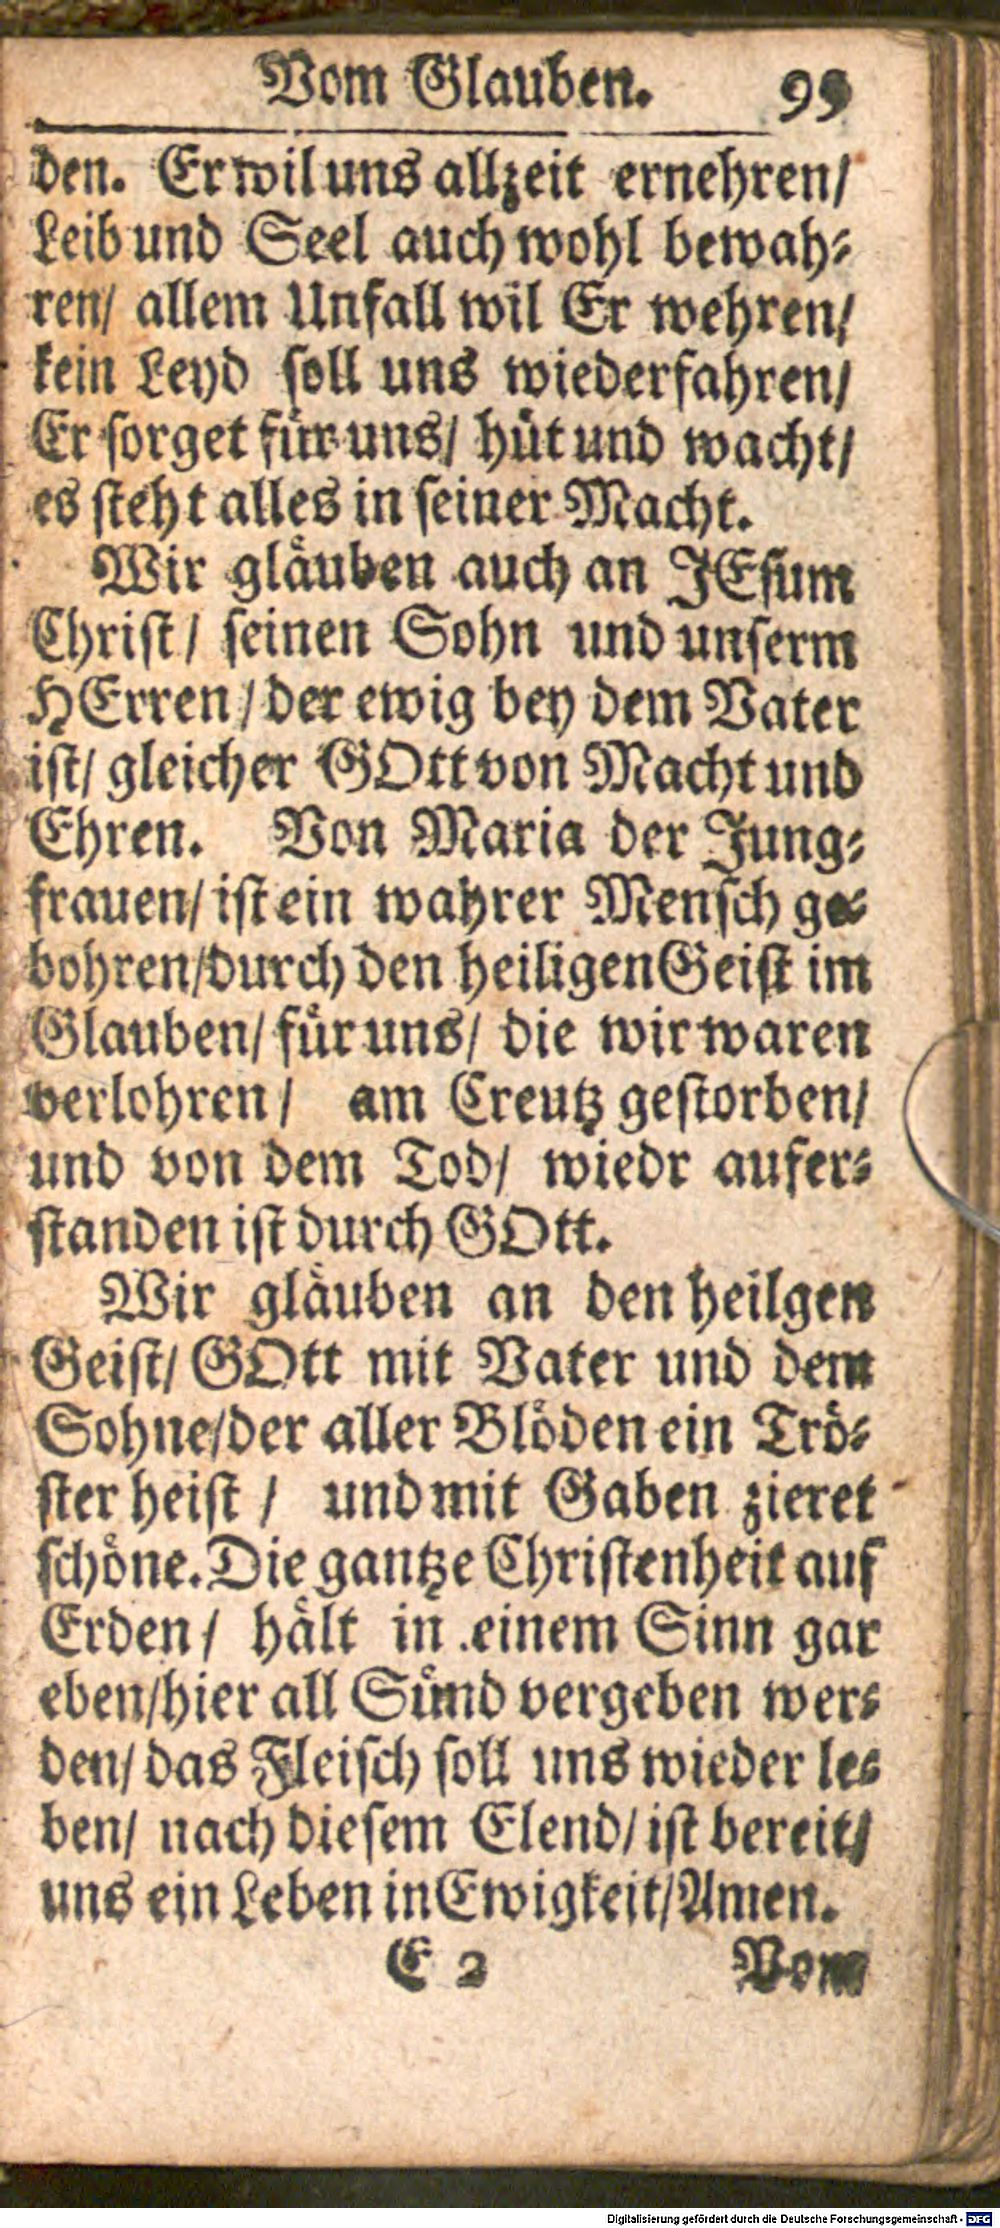 Vom Glauben. 99
den. Er wil uns allzeit ernehren/
Leib und Seel auch wohl bewah-
ren/ allem Unfall wil Er wehren/
kein Leyd soll uns wiederfahren/
Er sorget für uns/ hüt und wacht/
es steht alles in seiner Macht.
Wir gläuben auch an JEsum
Christ/ seinen Sohn und unserm
HErren/ der ewig bey dem Vater
ist/ gleicher GOtt von Macht und
Ehren. Von Maria der Jung-
frauen/ ist ein wahrer Mensch ge-
bohren/ durch den heiligen Geist im
Glauben/ für uns/ die wir waren
verlohren/ am Creutz gestorben/
und von dem Tod/ wiedr aufer-
standen ist durch GOtt.
Wir gläuben an den heilgen
Geist/ GOtt mit Vater und dem
Sohne/ der aller Blöden ein Trö-
ster heist/ und mit Gaben zieret
schöne. Die gantze Christenheit auf
Erden/ hält in einem Sinn gar
eben/ hier all Sünd vergeben wer-
den/ das Fleisch soll uns wieder le-
ben/ nach diesem Elend/ ist bereit/
uns ein Leben in Ewigkeit/ Amen.
E 2 Vom
Digitalisierung gefördert durch die Deutsche Forschungsgemeinschaft - DFG